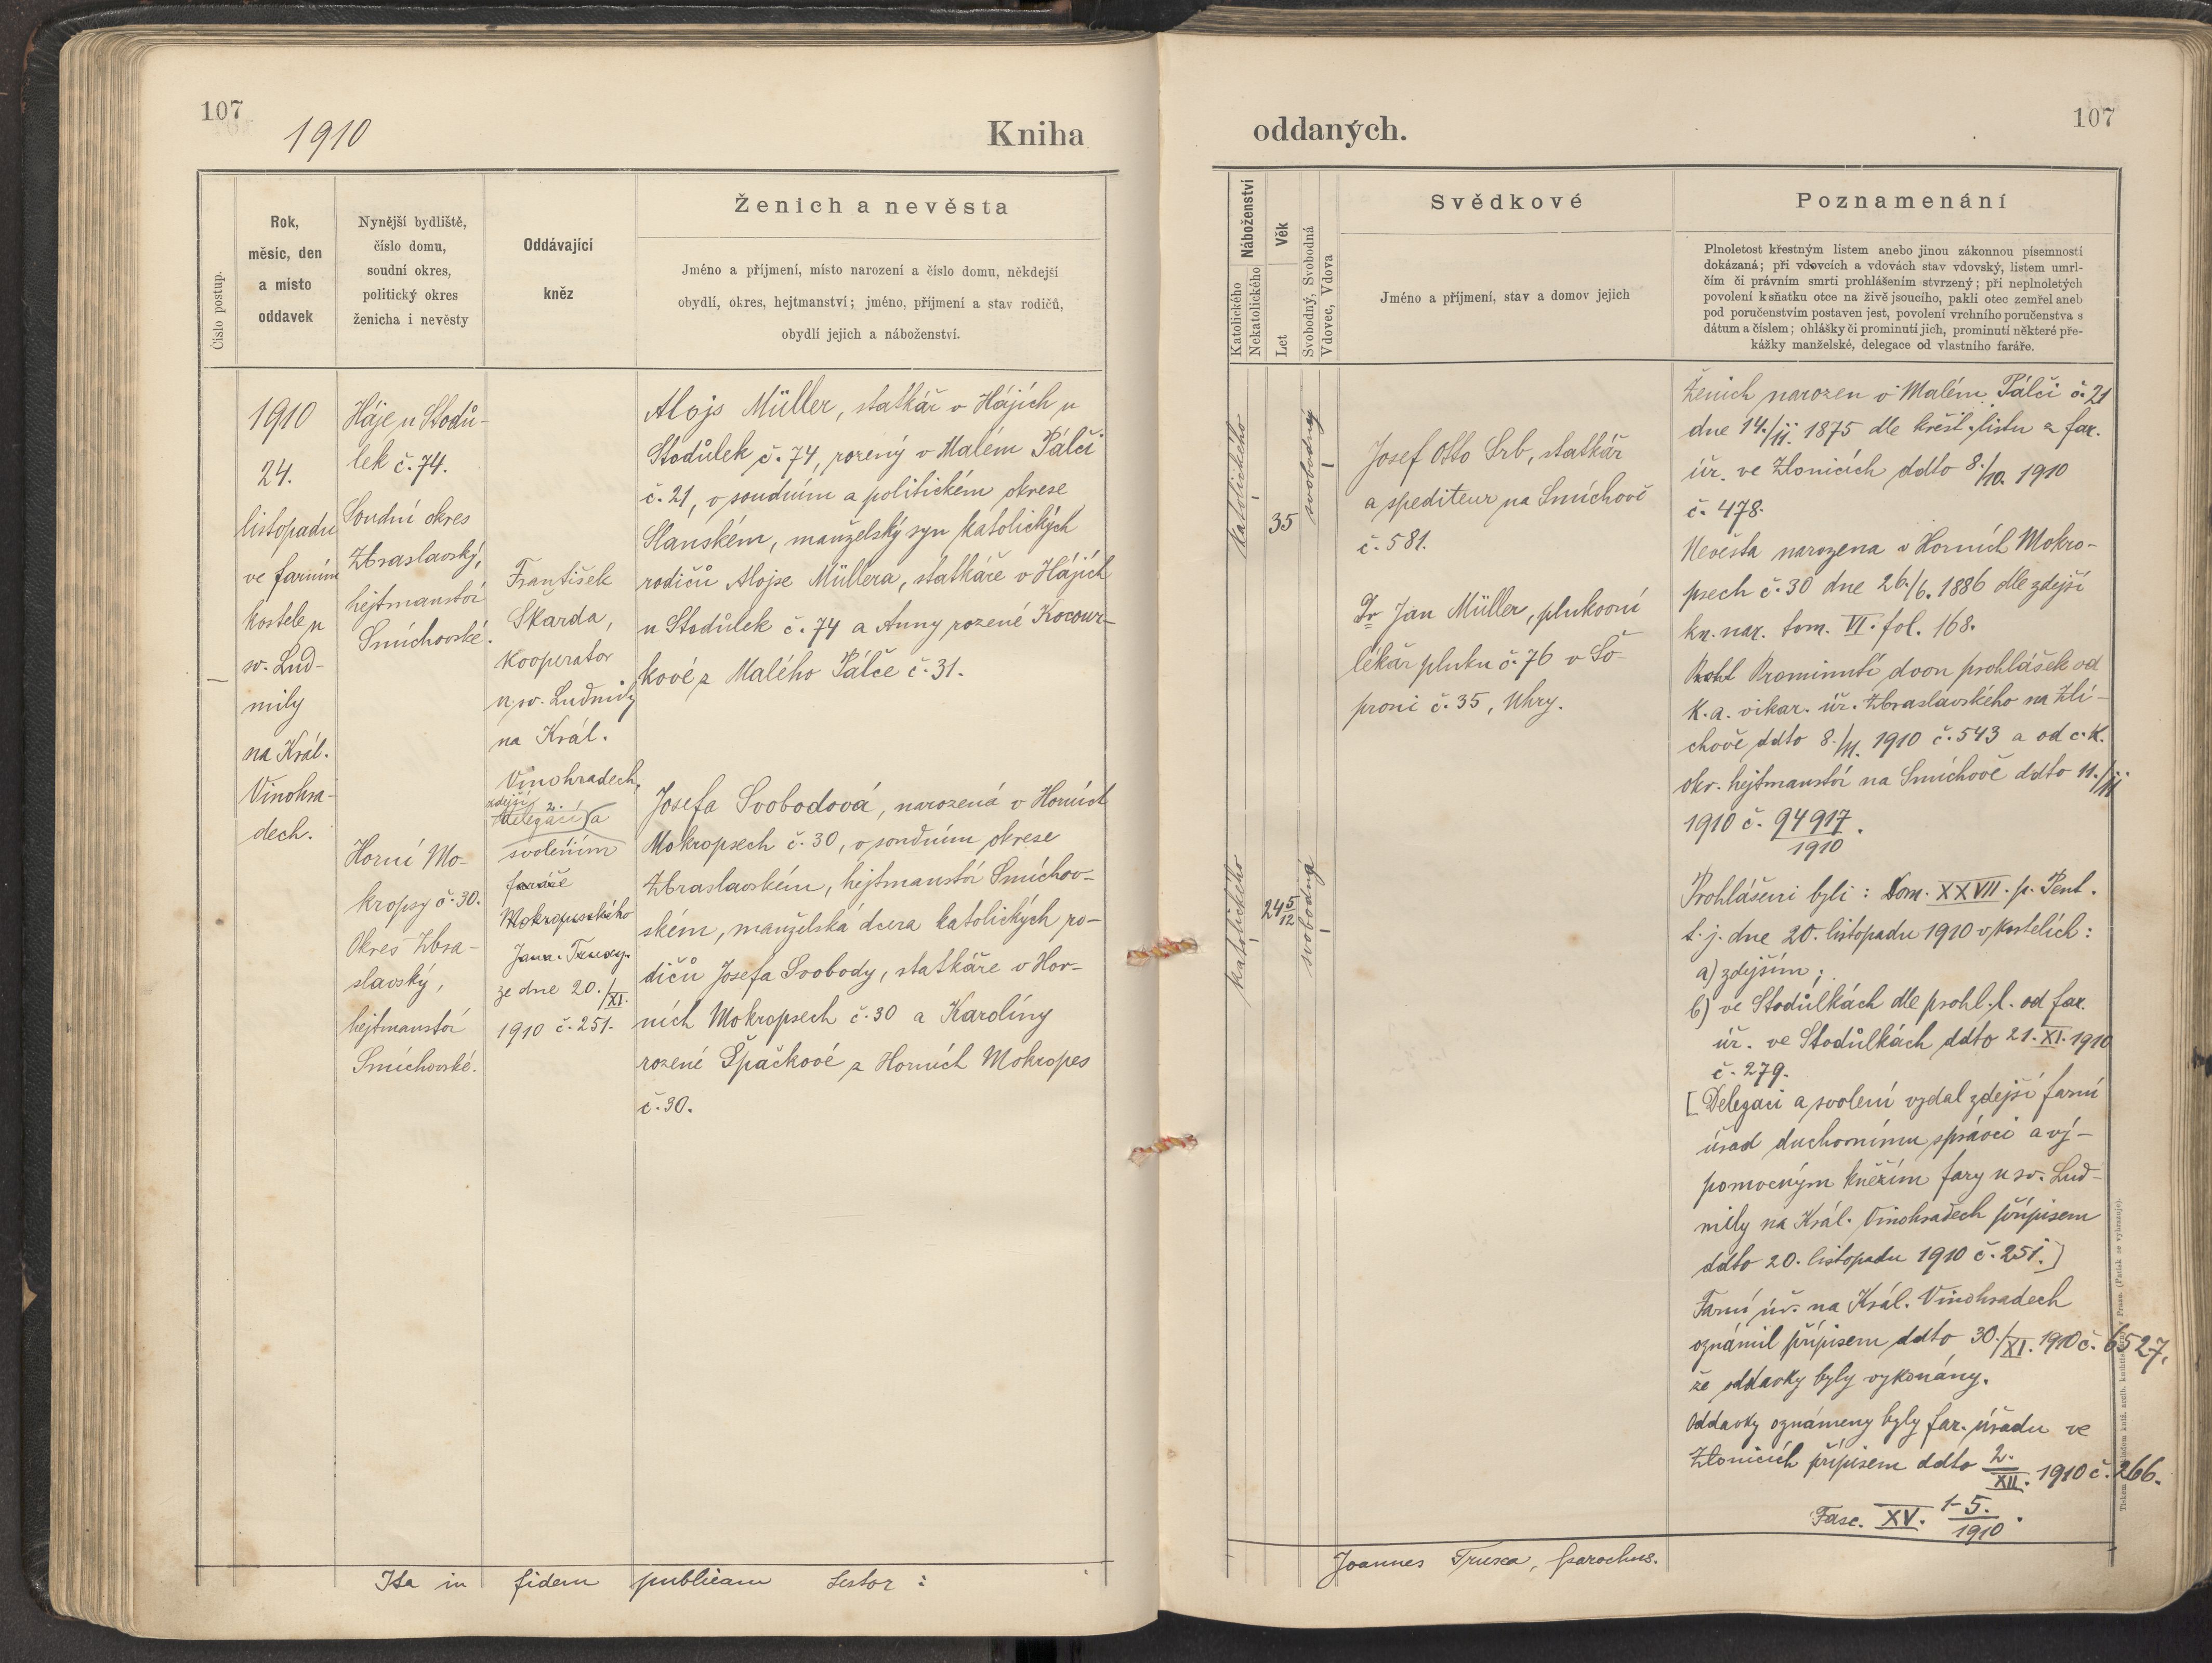 107
1910
Kniha
oddaných.
107
Číslo postup.
Rok,
měsic, den
a místo
oddavek
Nynější bydliště,
číslo domu,
soudní okres,
politický okres
ženicha i nevěsty
Oddávající
kněz
Ženich a nevěsta
Jméno a příjmení, místo narození a číslo domu, někdejší
obydlí, okres, hejtmanství; jméno, příjmení a stav rodičů,
obydlí jejich a náboženství.
Náboženství
Katolického
Nekatolického
Věk
Let
Svobodný, Svobodná
Vdovec, Vdova
Svědkové
Jméno a příjmení, stav a domov jejich
Poznamenání
Plnoletost křestným listem anebo jinou zákonnou písemností
dokázaná; při vdovcích a vdovách stav vdovský, listem umrl-
čím či právním smrti prohlášením stvrzený; při neplnoletých
povolení k sňatku otce na živě jsoucího, pakli otec zemřel aneb
pod poručenstvím postaven jest, povolení vrchního poručenstva s
dátum a číslem; ohlášky či prominutí jich, prominutí některé pře-
kážky manželské, delegace od vlastního faráře.
1910
24.
listopadu
ve farním
kostele u
sv. Lud-
mily
na Král.
Vinohra-
dech.
Háje u Stodů-
lek č. 74.
Soudní okres
Zbraslavský,
hejtmanství
Smíchovské.
Horní Mo-
kropsy č. 30.
Okres Zbra-
slavský,
hejtmanství
Smíchovské.
František
Škarda,
kooperator
u sv. Ludmily
na Král.
Vinohradech,
zdejší
delegací a
svolením
faráře
Mokropeského
Jana
ze dne 20./XI.
1910 č. 251.
Alojs Müller, statkář v Hájích u
Stodůlek č. 74, rozený v Malém Pálči
č. 21, v soudním a politickém okrese
Slanském, manželský syn katolických
rodičů Alojse Müllera, statkáře v Hájích
u Stodůlek č. 74 a Anny rozené Kocour-
kové z Malého Pálče č. 31.
Josefa Svobodová, narozená v Horních
Mokropsech č. 30, v soudním okrese
Zbraslavském, hejtmanství Smíchov-
ském, manželská dcera katolických ro-
dičů Josefa Svobody, statkáře v Hor-
ních Mokropsech č. 30 a Karolíny
rozené Špačkové z Horních Mokropes
č. 30.
katolického
35
svobodný
katolického
24 5/12
svobodná
Josef Otto Srb, statkář
a spediteur na Smíchově
č. 581.
Dr Jan Müller, plukovní
lékař pluku č. 76 v Šo-
proni č. 35, Uhry.
Ženich narozen v Malém Pálči č. 21
dne 14./11. 1875 dle křest. listu z far.
úř. ve Zlonicích ddto 8./10. 1910
č. 478.
Nevěsta narozena v Horních Mokro-
psech č. 30 dne 26./6. 1886 dle zdejší
kn. nar. tom. VI. fol. 168.
Prominutí dvou prohlášek od
k. a. vikar. úř. Zbraslavského na Zlí-
chově ddto 8./11. 1910 č. 543 a od c. k.
okr. hejtmanství na Smíchově ddto 11./11.
1910 č. 94917/1910.
Prohlášeni byli: Dom. XXVII. p. Pent.
t. j. dne 20. listopadu 1910 v kostelích:
a) zdejším;
b) ve Stodůlkách dle prohl. l. od far.
úř. ve Stodůlkách ddto 21. XI. 1910
č. 279.
[Delegaci a svolení vydal zdejší farní
úřad duchovnímu správci a vý-
pomocným kněžím fary u sv. Lud-
mily na Král. Vinohradech přípisem
ddto 20. listopadu 1910 č. 251.]
Farní úř. na Král. Vinohradech
oznámil přípisem ddto 30./XI. 1910 č. 6527,
že oddavky byly vykonány.
Oddavky oznámeny byly far. úřadu ve
Zlonicích přípisem ddto 2./XII. 1910 č. 266.
Fasc. XV. 1-5./1910.
Ita in fidem publicam testor:
Joannes Truxa, parochus.